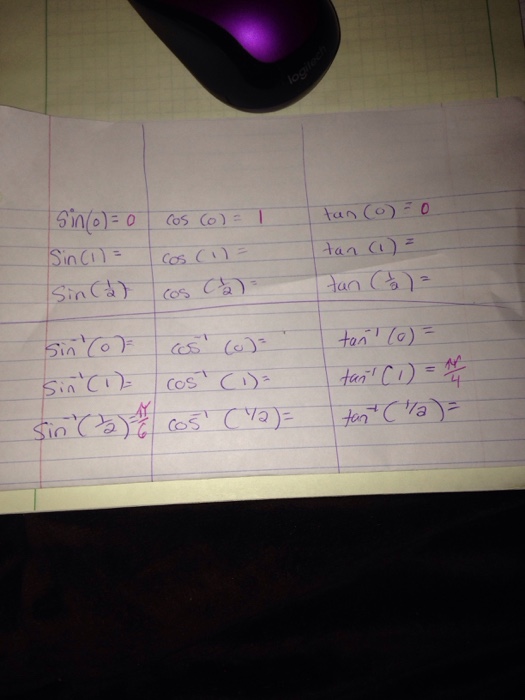 logitech
sin(0) = 0 cos (0) = 1 tan (0) = 0
sin(1) = cos (1) = tan (1) =
sin(1/2) cos (1/2) = tan (1/2) =
sin⁻¹(0) = cos⁻¹ (0) = tan⁻¹ (0) =
sin⁻¹(1) = cos⁻¹ (1) = tan⁻¹ (1) = π/4
sin⁻¹(1/2) = π/6 cos⁻¹ (1/2) = tan⁻¹ (1/2) =